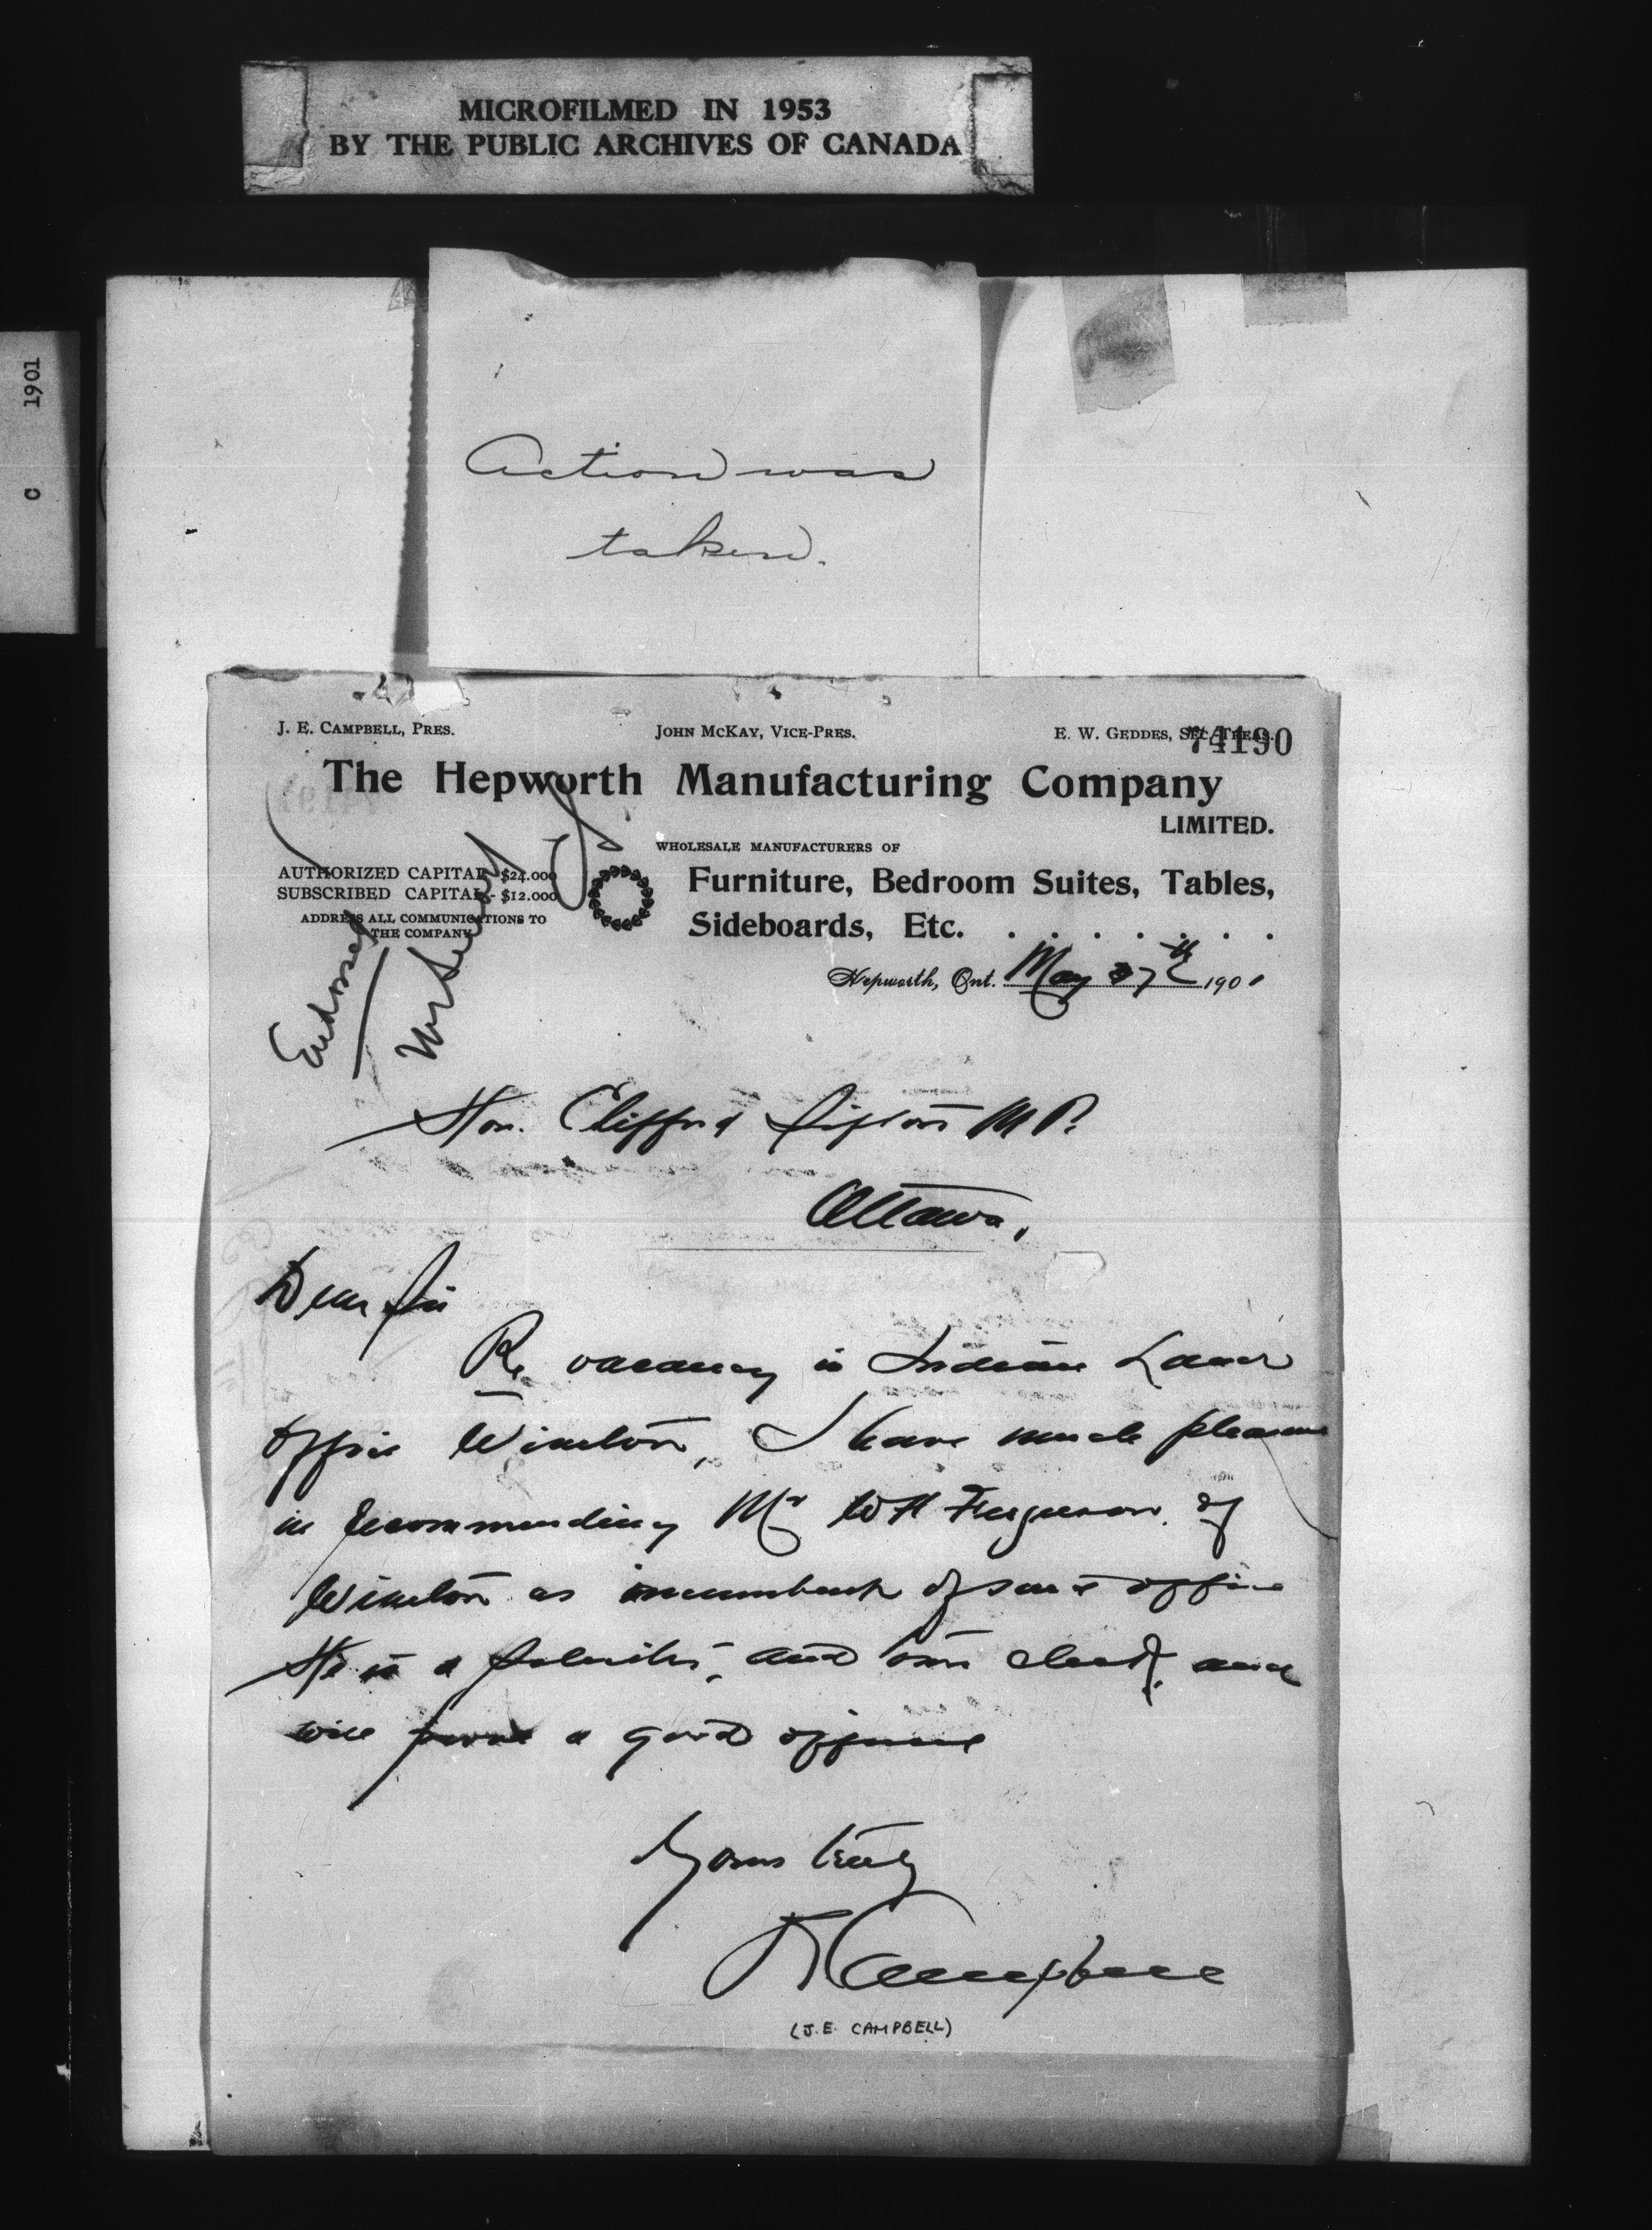 MICROFILMED IN 1953
BY THE PUBLIC ARCHIVES OF CANADA
C 1901
Action was
taken.
J. E. CAMPBELL, PRES. JOHN MCKAY, VICE-PRES. E. W. GEDDES, SEC.-TREAS.
74190
The Hepworth Manufacturing Company
LIMITED.
WHOLESALE MANUFACTURERS OF
AUTHORIZED CAPITAL - $24.000
SUBSCRIBED CAPITAL - $12.000
ADDRESS ALL COMMUNICATIONS TO
THE COMPANY
Furniture, Bedroom Suites, Tables,
Sideboards, Etc. . . . . . . .
Endorsed
Hepworth, Ont. May 27th 1901
Hon. Clifford Sifton M P.
Ottawa,
Dear Sir
Re vacancy in Indian Land
Office Wiarton, I have much pleasure
in recommending Mr W H Ferguson of
Wiarton as incumbent of said office
He is a and and
will prove a good officer
Yours truly
J E Campbell
(J.E. CAMPBELL)